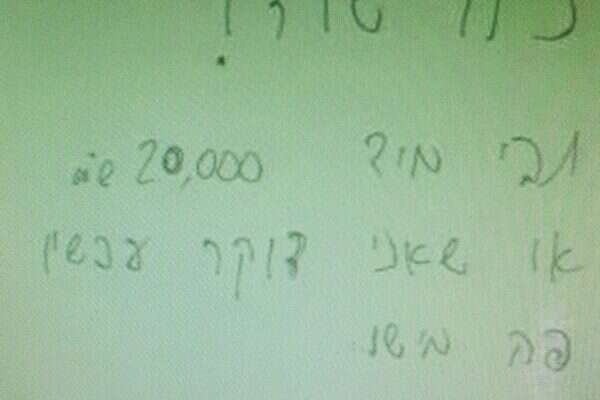 תבי מיד 20,000 ש"ח
או שאני דוקר עכשיו
פה מישו